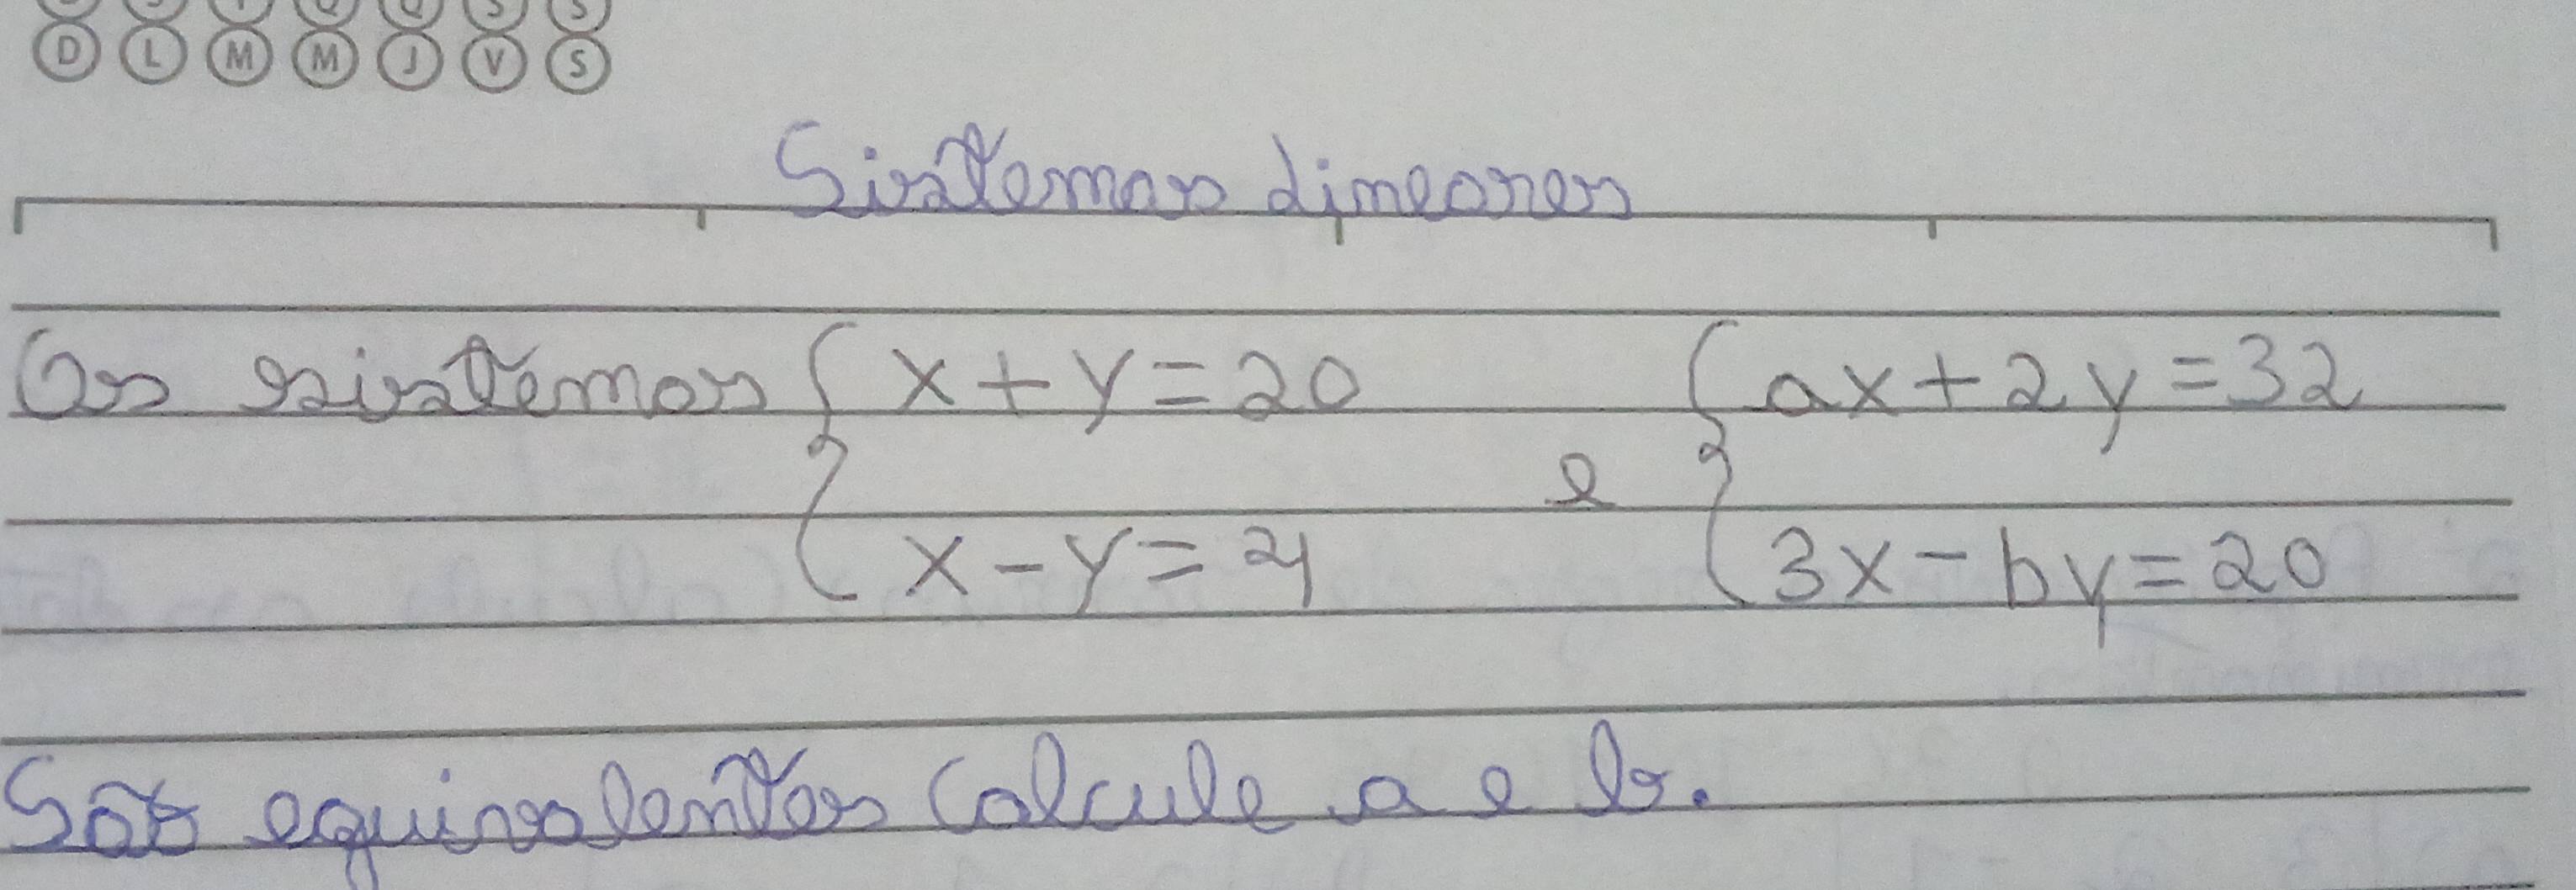 D L M M J V S
Sistemas Lineares
Os sistemas { x + y = 20 { ax + 2y = 32
e
x - y = 4 3x - by = 20
São equivalentes Calcule a e b.